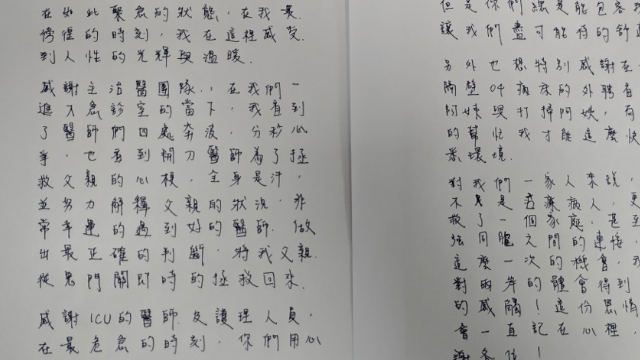 在如此緊急的狀態，在我最
徬徨的時刻，我在這裡感受
到人性的光輝與溫暖.
感謝主治醫團隊，在我們一
進入急診室的當下，我看到
了醫師們四處奔波，分秒必
爭，也看到開刀醫師為了拯
救父親的心梗，全身是汗，
並努力解釋父親的狀況，非
常幸運的遇到好的醫師，做
出最正確的判斷，將我父親
從鬼門關即時的拯救回來.
感謝ICU的醫師及護理人員，
在最危急的時刻，你們用心
但是你們總是能包容
讓我們盡可能得的舒
另外也想特別感謝在
開整04病床的外聘看
阿姨與打掃阿姨，有
的幫忙我才能這麼快
悉環境.
對我們一家人來說，
不只是治療病人，更
救了一個家庭，甚至
強回膽之間的連接，
這麼一次的機會，我
對的岸的體會得到
的感觸！這份恩情
會一直記在心裡，
謝各位！